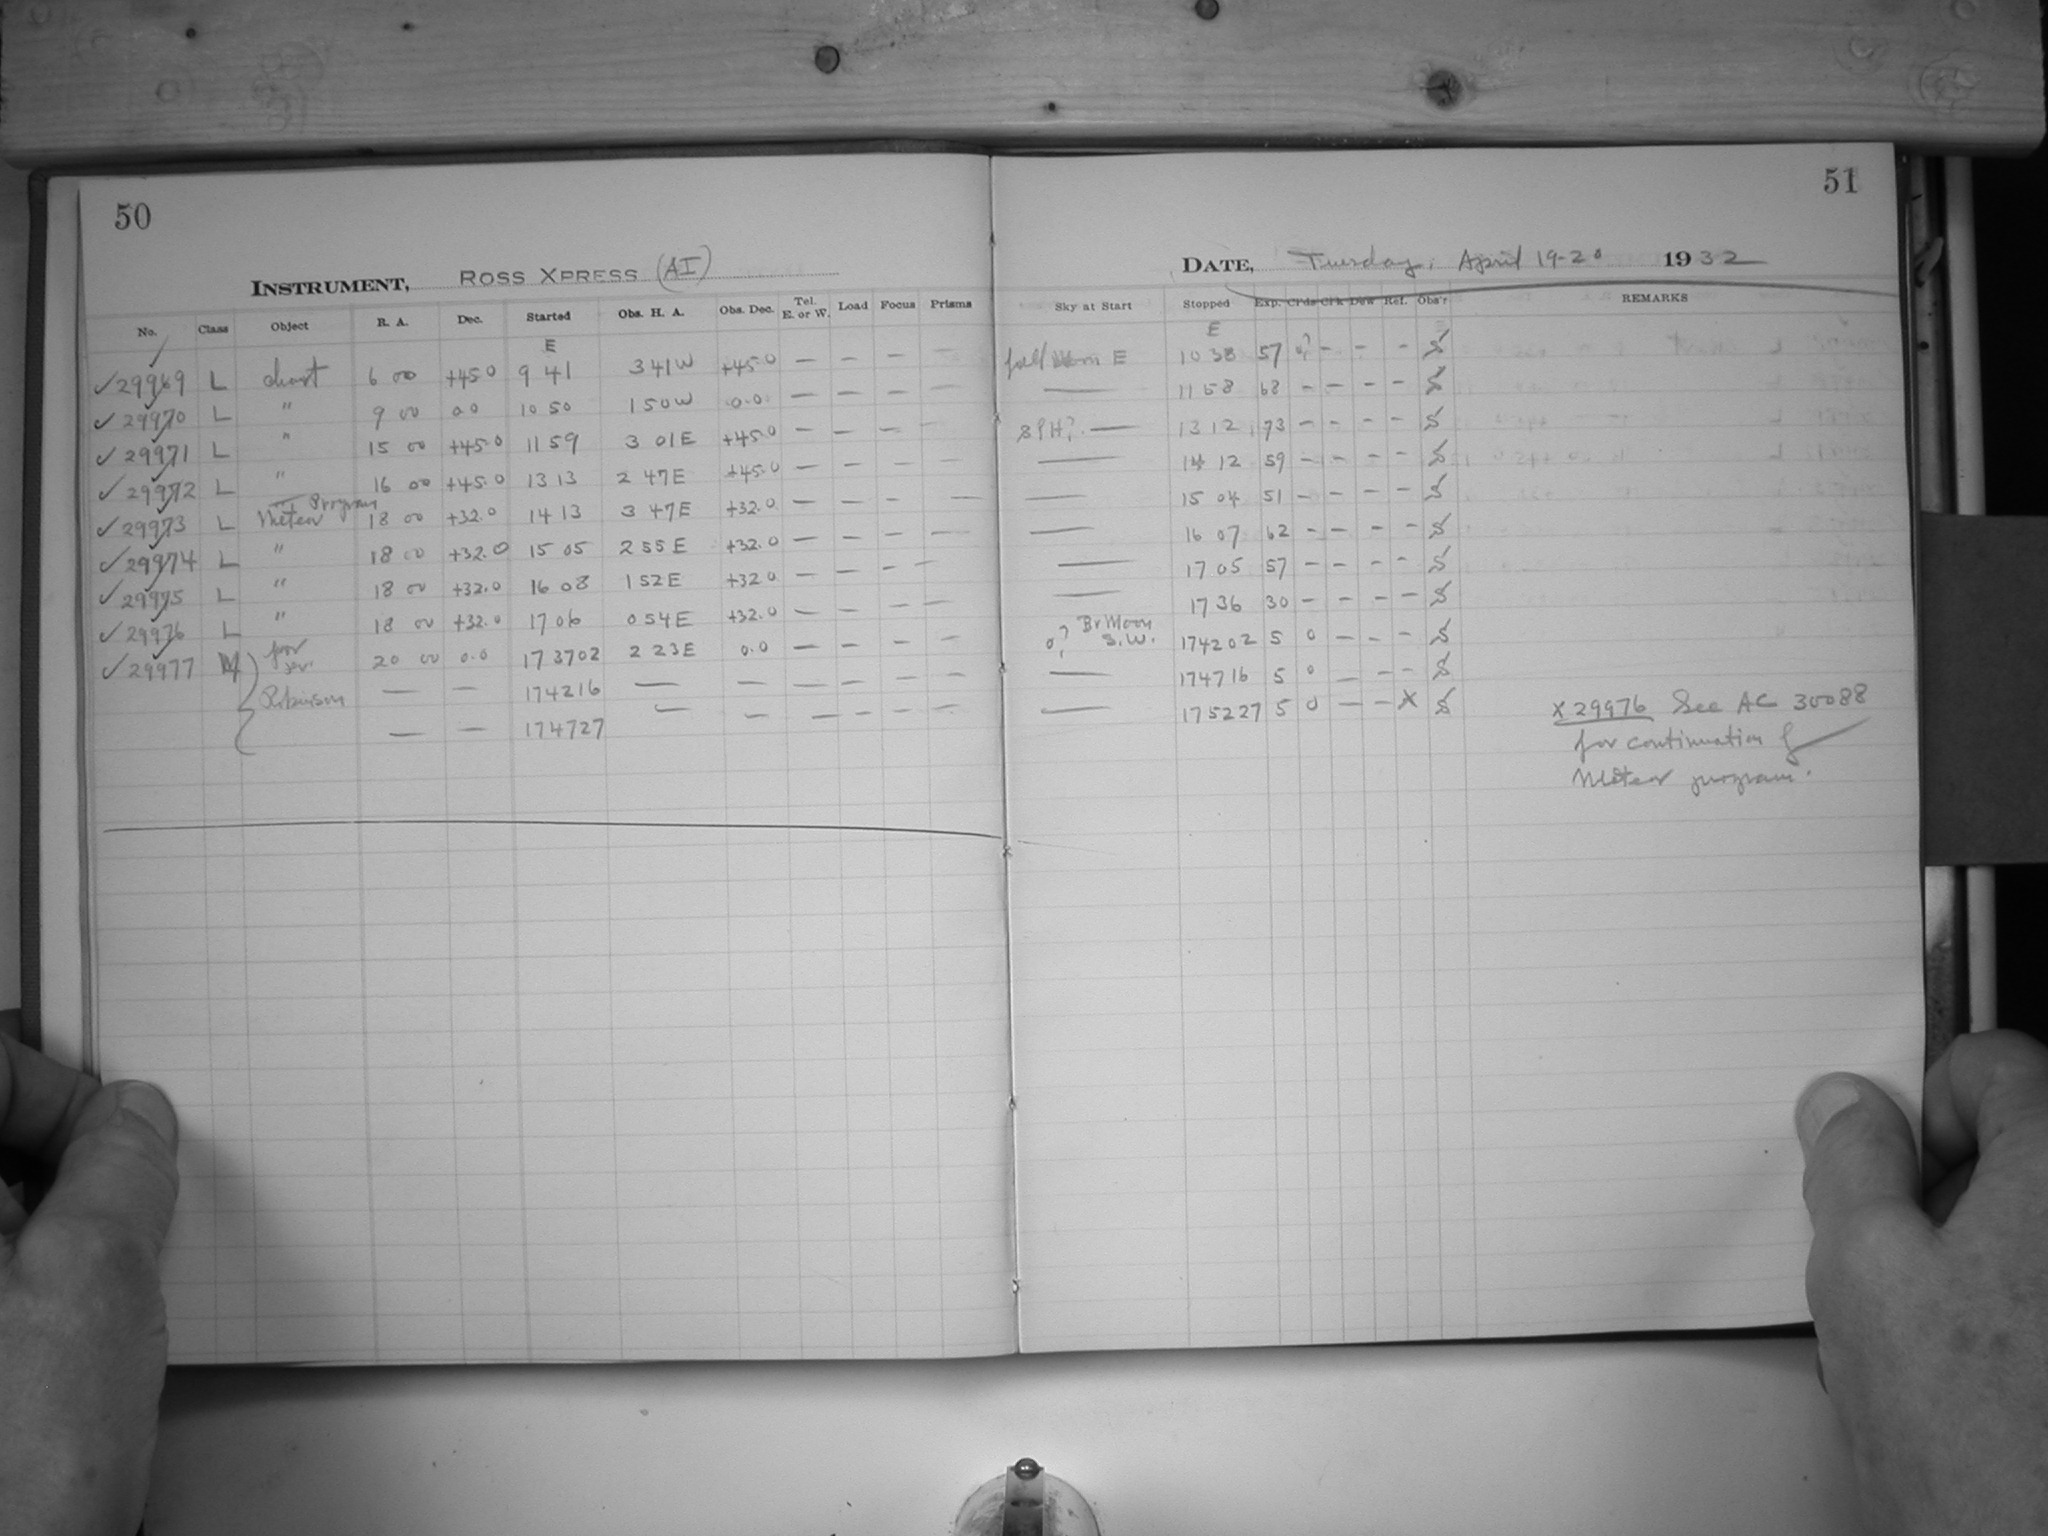 50
51
INSTRUMENT, ROSS XPRESS (AI)
DATE, Tuesday, April 19-20 1932
No. Class Object R. A. Dec. Started Obs. H. A. Obs. Dec. Tel. E. or W. Load Focus Prisms
Sky at Start Stopped Exp. Cl'ds Clk Dew Ref. Obs'r REMARKS
E
E
✓ 29969 L chart 6 00 +45.0 9 41 3 41 W +45.0 — — — —
E 10 38 57 0? - - - S
✓ 29970 L " 9 00 0.0 10 50 1 50 W 0.0 — — — —
— 11 58 68 - - - - S
✓ 29971 L " 15 00 +45.0 11 59 3 01 E +45.0 — — — —
SPH? — 13 12 73 - - - - S
✓ 29972 L " 16 00 +45.0 13 13 2 47 E +45.0 — — — —
— 14 12 59 - - - - S
✓ 29973 L Meteor Program 18 00 +32.0 14 13 3 47 E +32.0 — — — —
— 15 04 51 - - - - S
✓ 29974 L " 18 00 +32.0 15 05 2 55 E +32.0 — — — —
— 16 07 62 - - - - S
✓ 29975 L " 18 00 +32.0 16 08 1 52 E +32.0 — — — —
— 17 05 57 - - - - S
✓ 29976 L " 18 00 +32.0 17 06 0 54 E +32.0 — — — —
— 17 36 30 - - - - S
✓ 29977 M for 20 00 0.0 17 37 02 2 23 E 0.0 — — — —
0? Br Moon S.W. 17 42 02 5 0 - - - S
Robinson — — 17 42 16 — — — — — —
— 17 47 16 5 0 - - - S
— — 17 47 27 — — — — — —
— 17 52 27 5 0 - - X S
X 29976 See AC 30088
for continuation of
Meteor program.